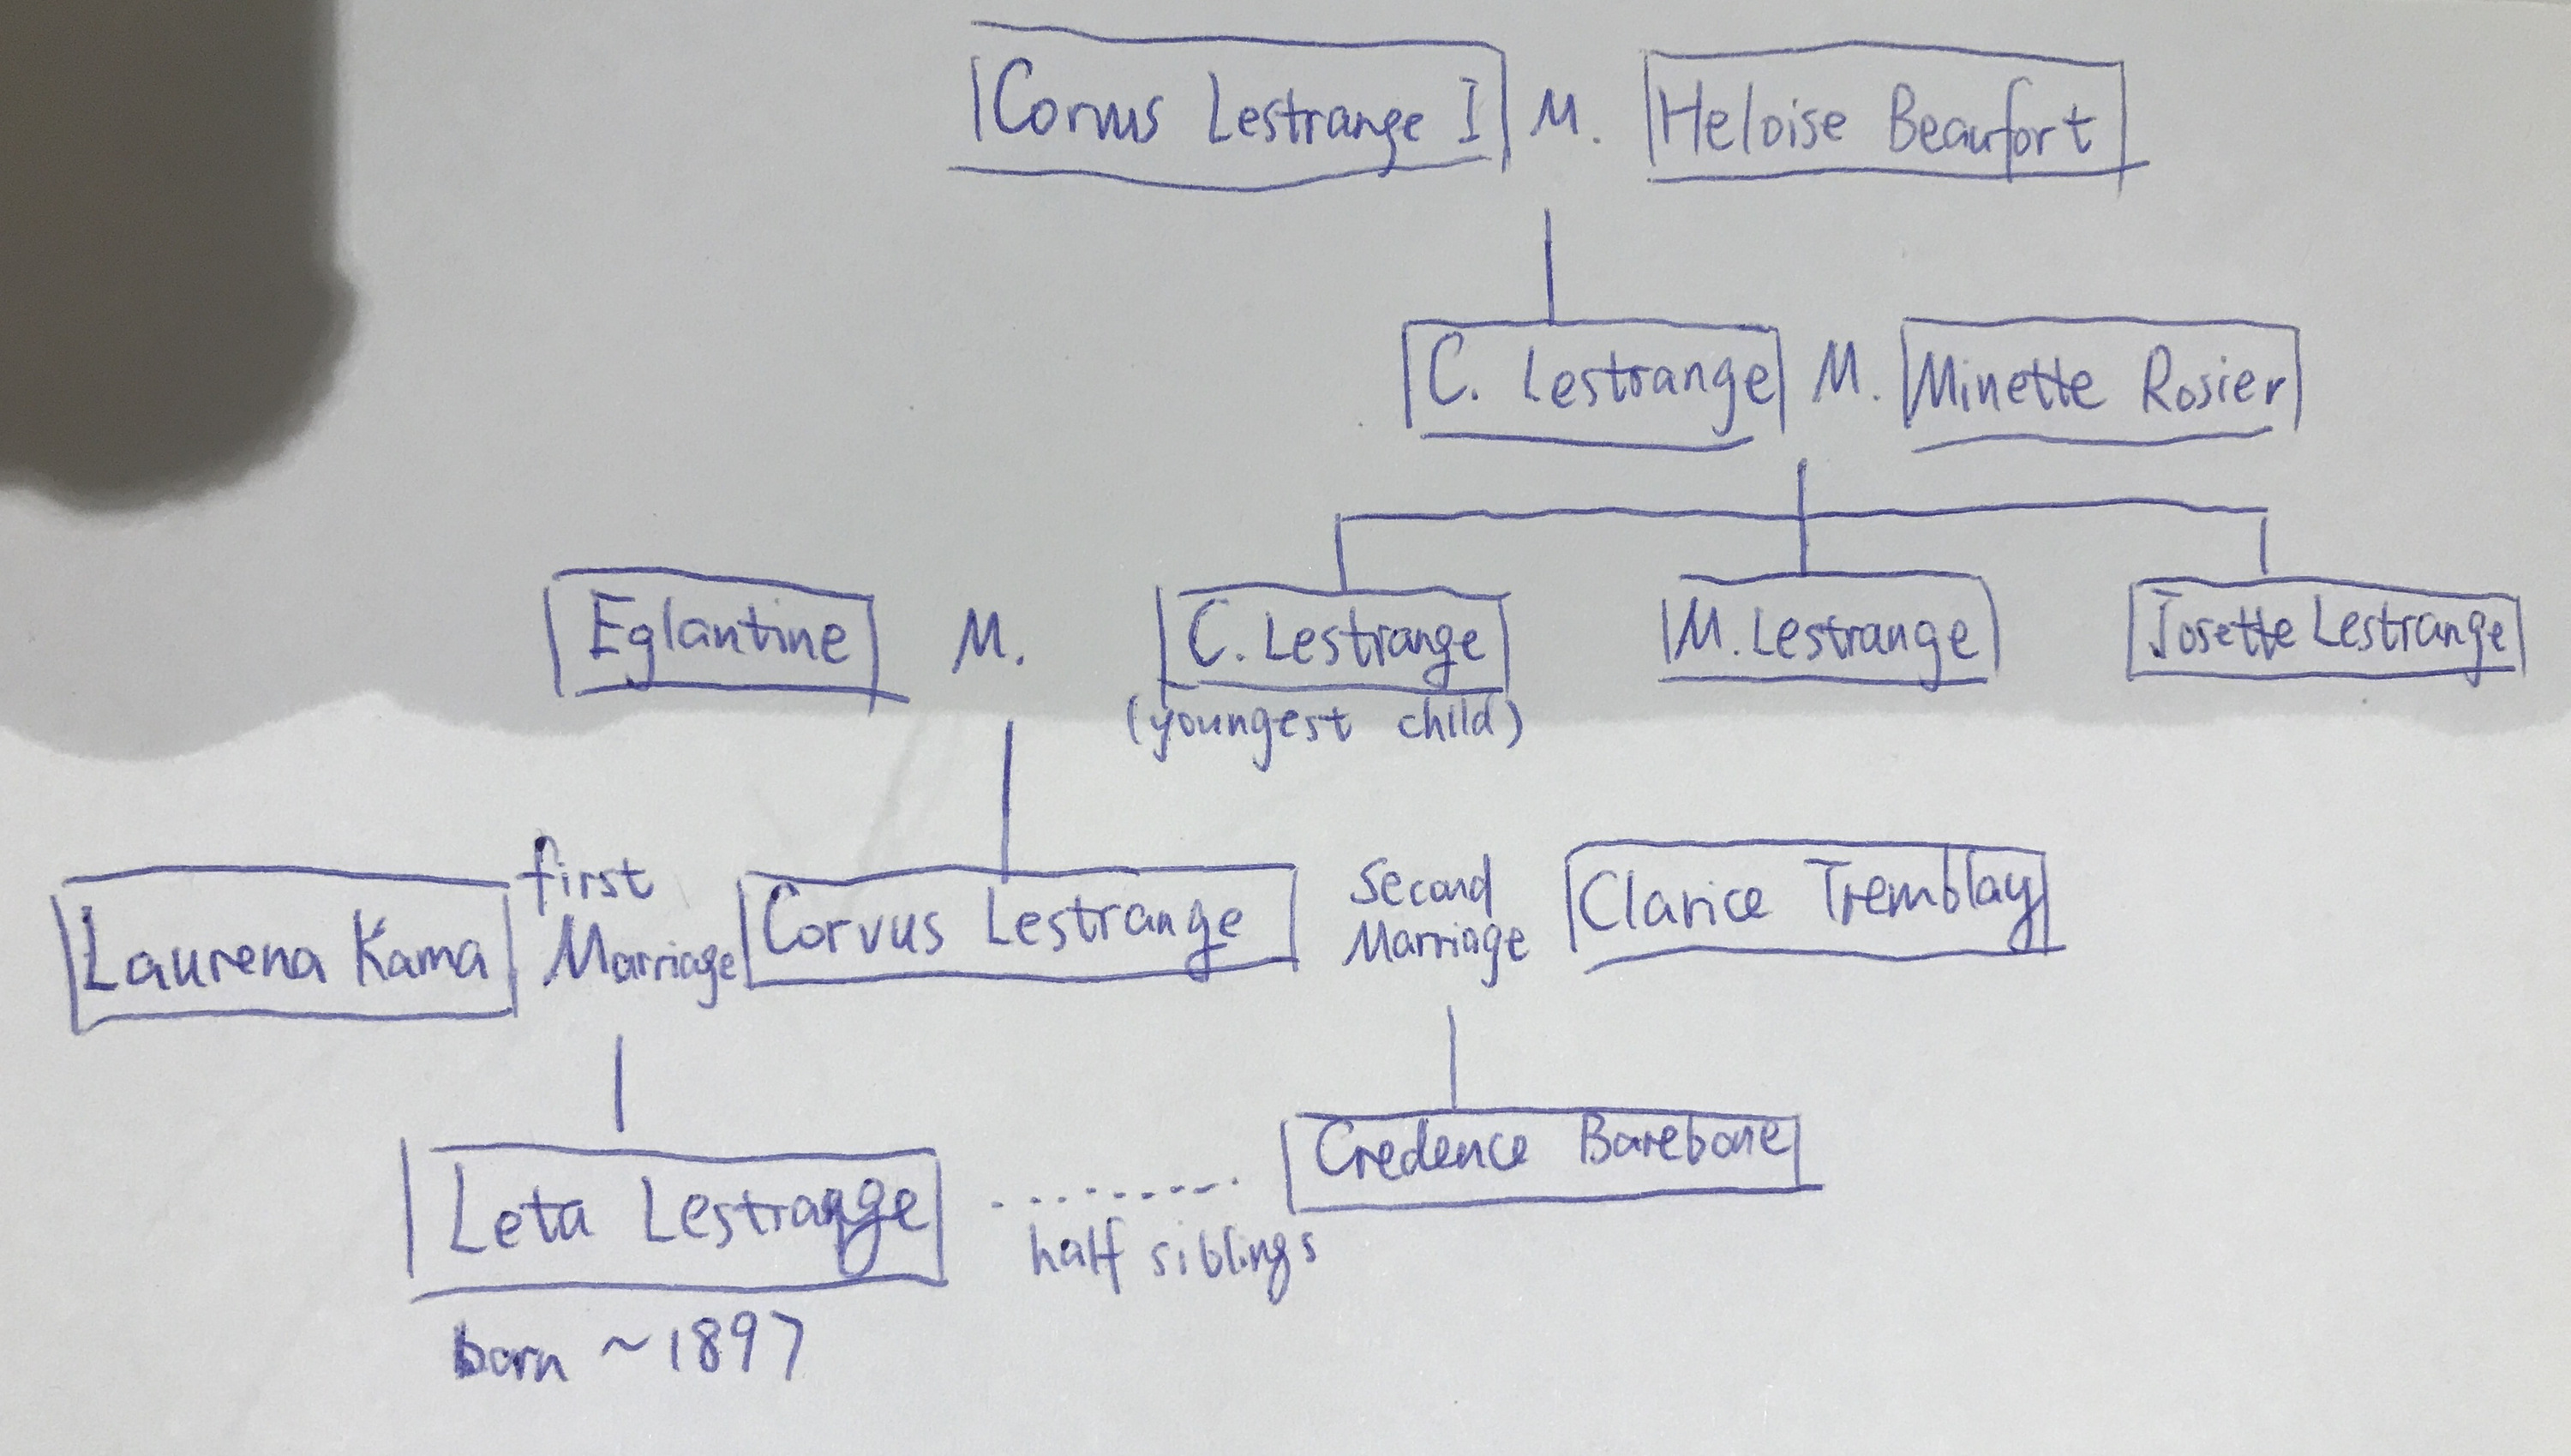 Corvus Lestrange I M. Heloise Beaufort
C. Lestrange M. Minette Rosier
Eglantine M. C. Lestrange M. Lestrange Josette Lestrange
(youngest child)
Laurena Kama first Marriage Corvus Lestrange Second Marriage Clarice Tremblay
Leta Lestrange half siblings Credence Barebone
born ~1897